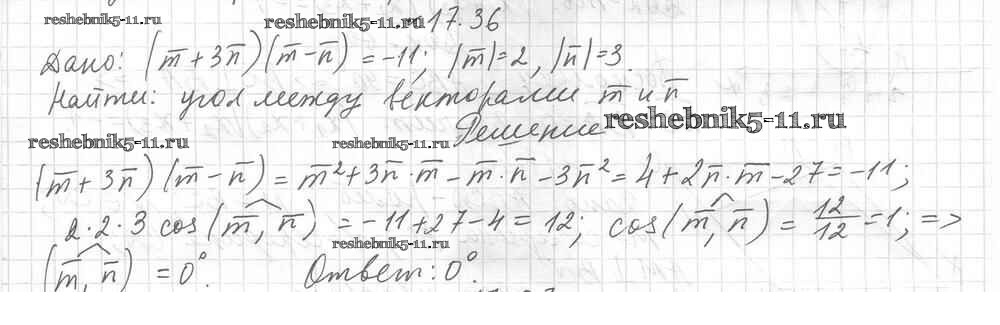 reshebnik5-11.ru reshebnik5-11.ru 17.36
Дано: (m̅+3n̅)(m̅-n̅) = -11; |m̅|=2, |n̅|=3.
Найти: угол между векторами m̅ и n̅
reshebnik5-11.ru Решение reshebnik5-11.ru
(m̅+3n̅)(m̅-n̅) = m̅²+3n̅·m̅-m̅·n̅-3n̅²=4+2n̅·m̅-27=-11;
2·2·3 cos(m̅,n̅) = -11+27-4=12; cos(m̅,n̅) = 12/12 =1; =>
reshebnik5-11.ru
(m̅,n̅) = 0°. Ответ: 0°.